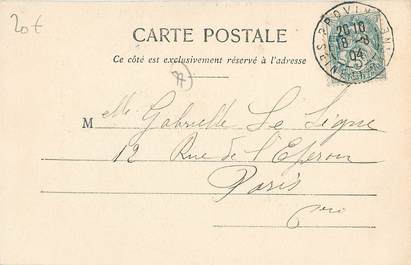 20€
CARTE POSTALE
Ce côté est exclusivement réservé à l'adresse
PROVINS
20 18
18-8
04
Melle Gabrielle Le Ligne
12 Rue de l'Eperon
Paris